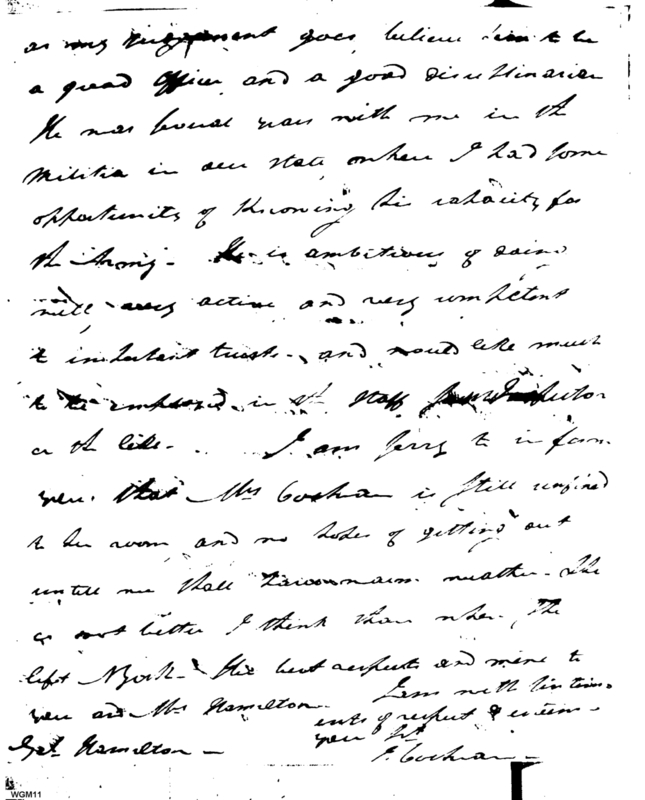 as my judgement goes, believe him to be
a good Officer and a good disciplinarian
He was several years with me in the
Militia in our State where I had some
opportunity of Knowing his capacity for
the Army. He is ambitious of doing
well very active and very competent
to important trusts. and would like much
to be employed in the Staff Inspector
or the like. I am sorry to inform
you. that Mrs Cochran is still confined
to her room and no hopes of getting out
untill we shall have warm weather. She
is not better I think than when She
left NYork. Her best respects and mine to
you and Mrs Hamilton. I am with sentim-
ents of respect & esteem.
your
Genl. Hamilton J. Cochran
WGM11